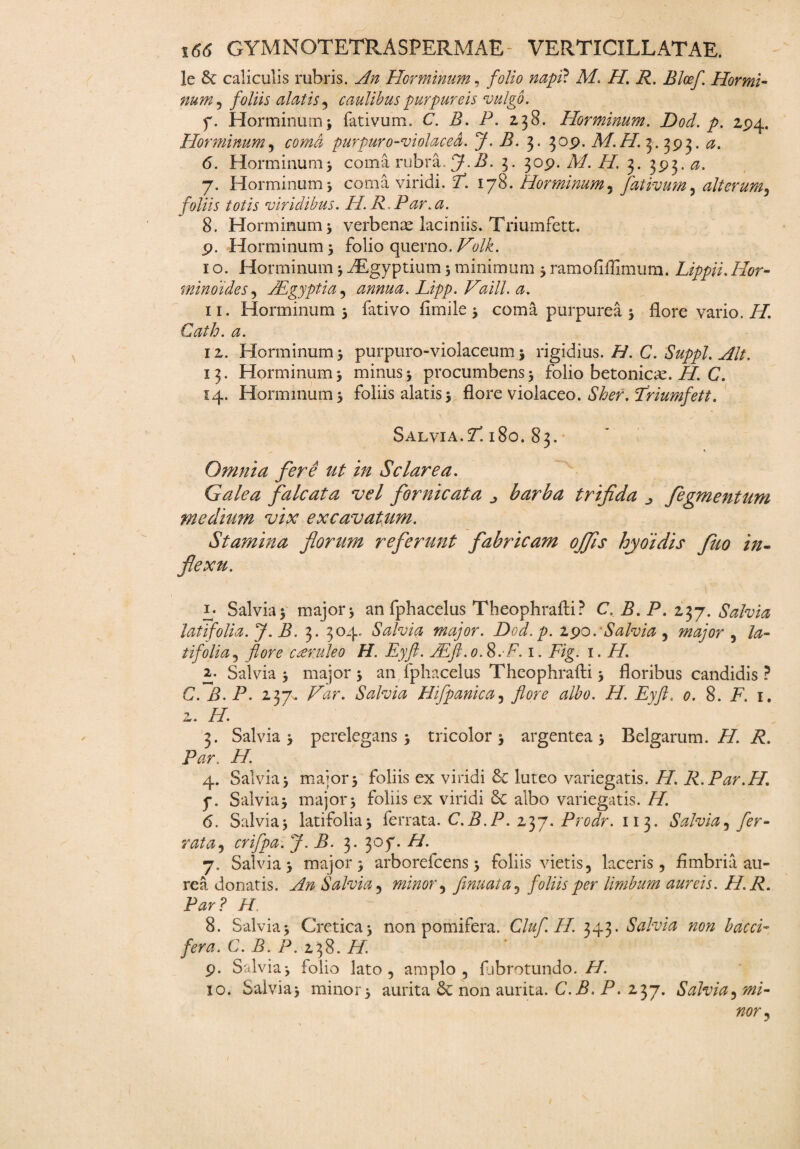 166 GYMNOTETRASPERMAE VERTICILLATAE.
le & caliculis rubris. An Horminum, folio napi? M. H. R. Blœſ. Hormi-
num, foliis alatis, caulibus purpureis vulgò.
5. Horminum; ſativum. C. B. P. 238. Horminum. Dod. p. 294.
Horminum, comâ purpuro-violaceâ. J. B. 3. 309. M. H. 3. 393. a.
6. Horminum; comâ rubrâ. J. B. 3. 309. M. H. 3. 393. a.
7. Horminum; comâ viridi. T. 178. Horminum, ſativum, alterum,
foliis totis viridibus. H. R. Par. a.
8. Horminum; verbenæ laciniis. Triumfett.
9. Horminum; folio querno. Volk.
10. Horminum; Ægyptium; minimum; ramoſiſſimum. Lippii. Hor-
minoïdes, Ægyptia, annua. Lipp. Vaill. a.
11. Horminum; ſativo ſimile; comâ purpureâ; flore vario. H.
Cath. a.
12. Horminum; purpuro-violaceum; rigidius. H. C. Suppl. Alt.
13. Horminum; minus; procumbens; folio betonicæ. H. C.
14. Horminum; foliis alatis; flore violaceo. Sher. Triumfett.
SALVIA. T. 180. 83.
Omnia ferè ut in Sclarea.
Galea falcata vel fornicata, barba trifida, ſegmentum
medium vix excavatum.
Stamina florum referunt fabricam oſſis hyoïdis ſuo in-
flexu.
1. Salvia; major; an ſphacelus Theophraſti? C. B. P. 237. Salvia
latifolia. J. B. 3. 304. Salvia major. Dod. p. 290. Salvia, major, la-
tifolia, flore cæruleo H. Eyſt. Æſt. o. 8. F. 1. Fig. 1. H.
2. Salvia; major; an ſphacelus Theophraſti; floribus candidis?
C. B. P. 237. Var. Salvia Hiſpanica, flore albo. H. Eyſt. o. 8. F. 1.
2. H.
3. Salvia; perelegans; tricolor; argentea; Belgarum. H. R.
Par. H.
4. Salvia; major; foliis ex viridi & luteo variegatis. H. R. Par. H.
5. Salvia; major; foliis ex viridi & albo variegatis. H.
6. Salvia; latifolia; ſerrata. C. B. P. 237. Prodr. 113. Salvia, ſer-
rata, criſpa. J. B. 3. 305. H.
7. Salvia; major; arboreſcens; foliis vietis, laceris, fimbriâ au-
reâ donatis. An Salvia, minor, ſinuata, foliis per limbum aureis. H. R.
Par? H.
8. Salvia; Cretica; non pomifera. Cluſ. H. 343. Salvia non bacci-
fera. C. B. P. 238. H.
9. Salvia; folio lato, amplo, ſubrotundo. H.
10. Salvia; minor; aurita & non aurita. C. B. P. 237. Salvia, mi-
nor,